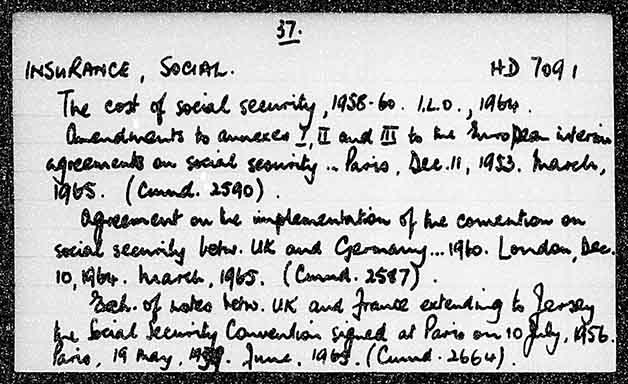 37.
INSURANCE, SOCIAL. HD 7091
The cost of social security, 1958-60. I.L.O., 1964.
Amendments to annexes I, II and III to the European interim
agreements on social security .. Paris, Dec. 11, 1953. March,
1965. (Cmnd. 2590).
Agreement on the implementation of the convention on
social security betw. UK and Germany... 1960. London, Dec.
10, 1964. March, 1965. (Cmnd. 2587).
Exch. of notes betw. UK and France extending to Jersey
the Social Security Convention signed at Paris on 10 July, 1956.
Paris, 19 May, June, 1965. (Cmnd. 2664).